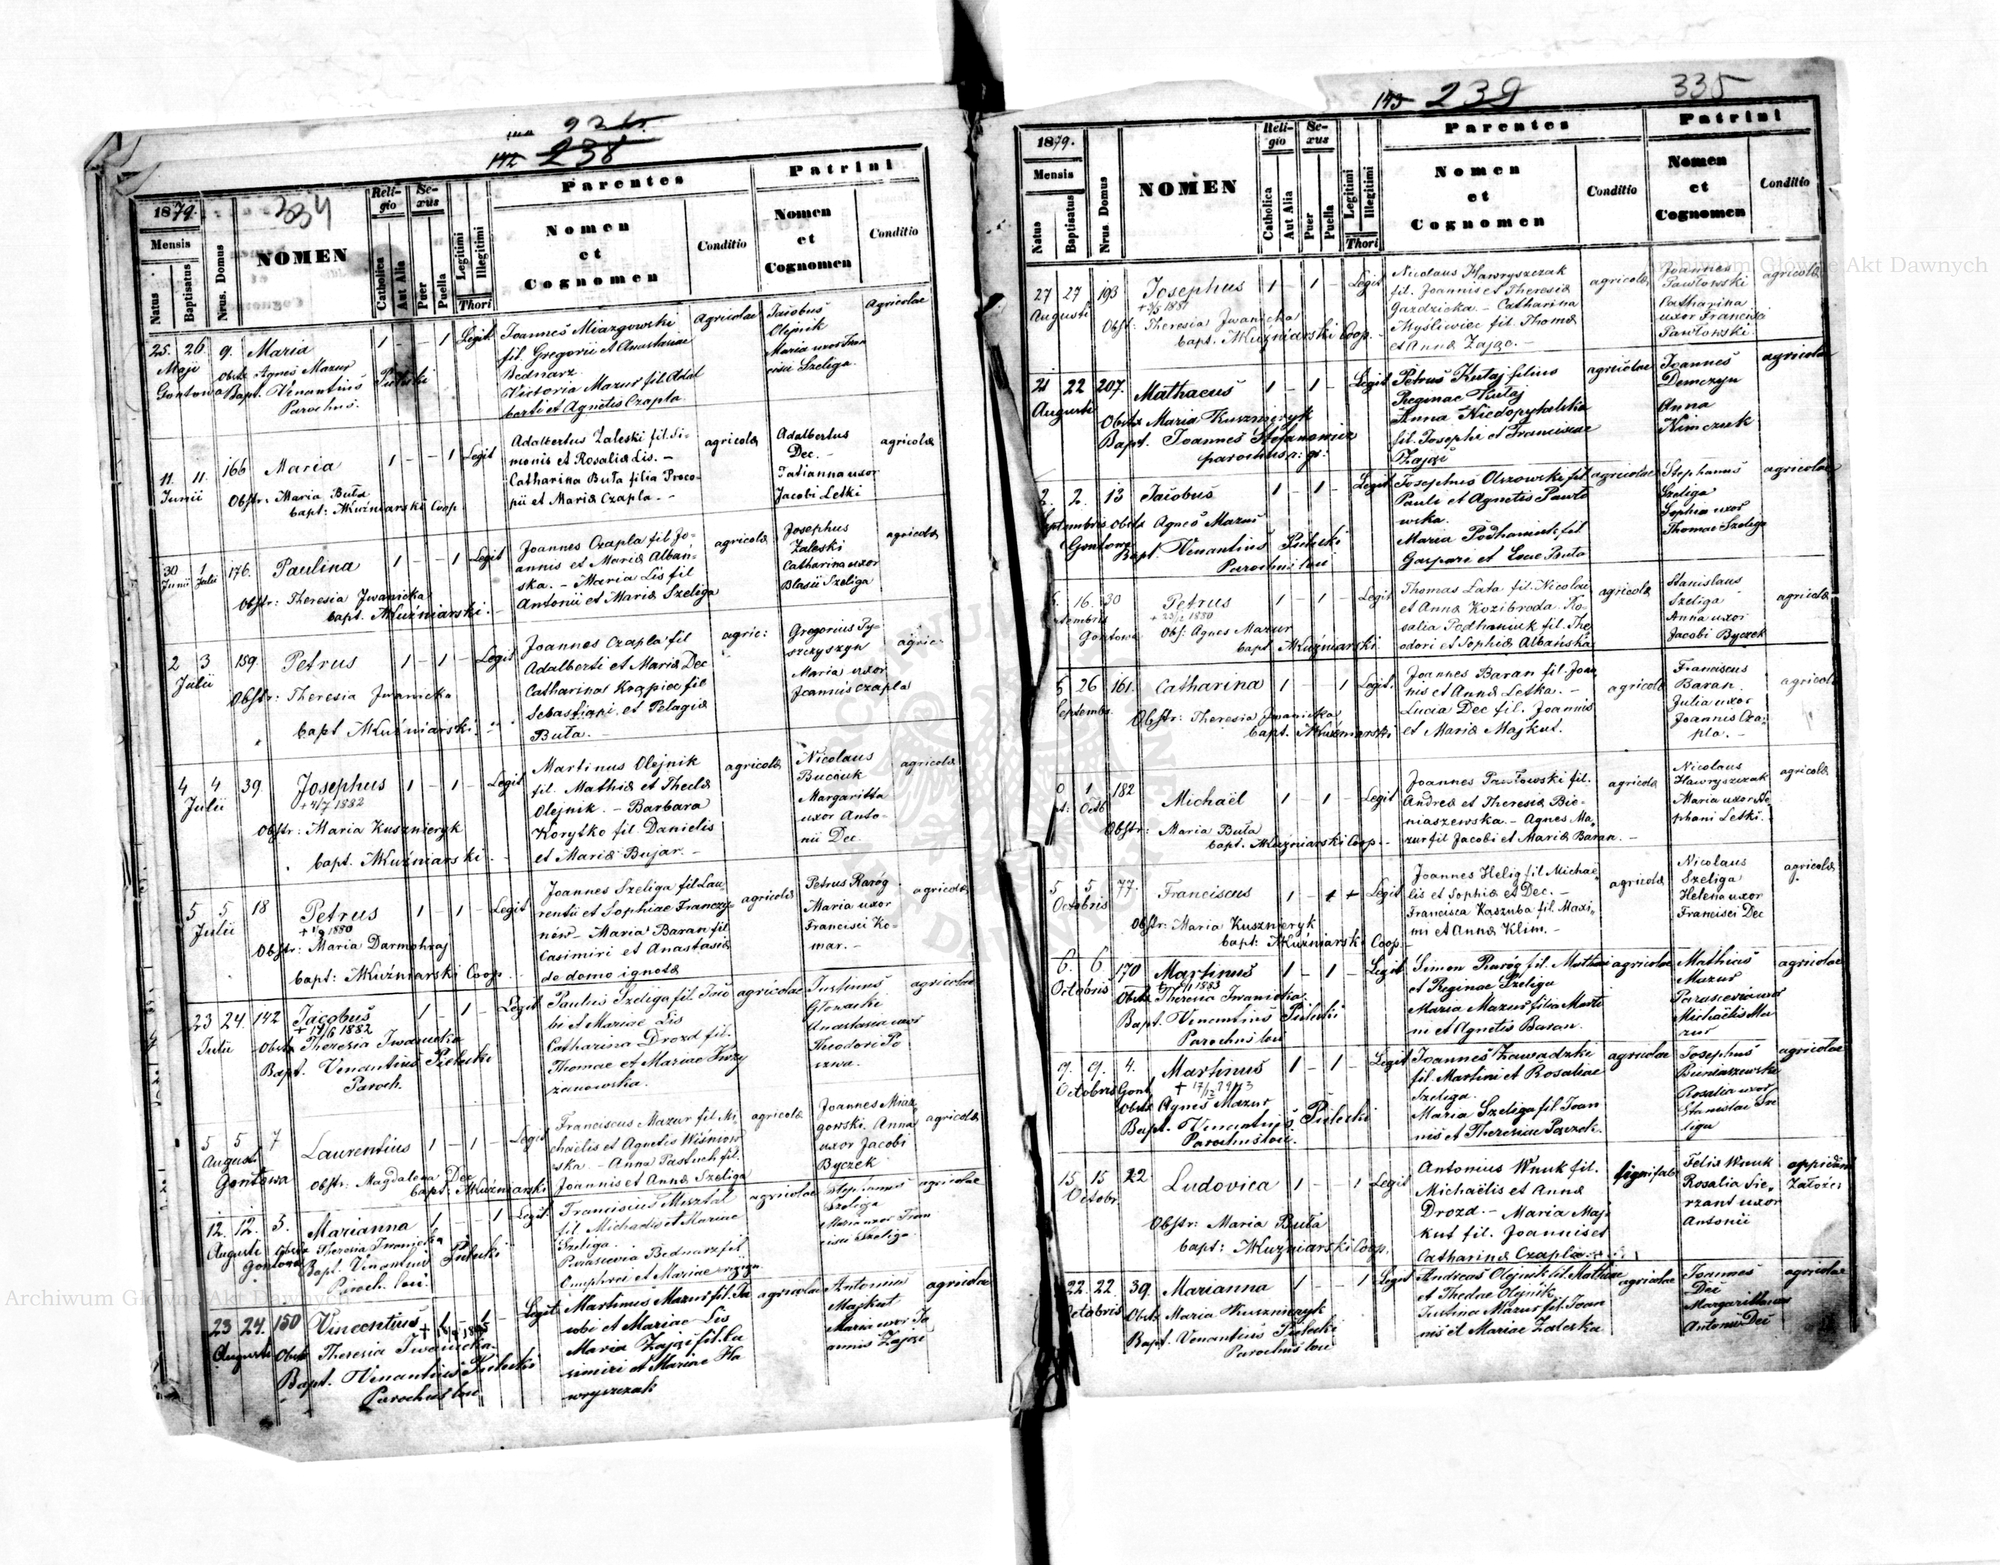 238
334
1879.
Mensis
Natus
Baptisatus
Nrus. Domus
NOMEN
Religio
Catholica
Aut Alia
Sexus
Puer
Puella
Legitimi
Illegitimi
Thori
Parentes
Nomen
et
Cognomen
Conditio
Patrini
Nomen
et
Cognomen
Conditio
25. 26 9. Maria 1 - - 1 Legit
Maji Obstx Agnes Mazur
Gontowa Bapt. Venantius Pielecki
Parochus.
Joannes Miazgowski
fil. Gregorii et Anastasiae
Bednarz
Victoria Mazur fil. Adal
berti et Agnetis Czapla
Agricolae
Jacobus
Olejnik
Maria uxor Fran
cisci Szeliga
Agricolae
11. 11. 166 Maria 1 - - 1 Legit
Junii Obstr: Maria Buła
bapt: MKuźniarski Coop.
Adalbertus Zaleski fil. Si-
monis et Rosaliæ Lis. -
Catharina Buła filia Proco-
pii et Mariæ Czapla. -
agricolæ
Adalbertus
Dec. -
Tatianna uxor
Jacobi Letki
agricolæ
30 1 176. Paulina 1 - - 1 Legit
Junii Julii
Obstr: Theresia Jwanicka
bapt. MKuźniarski. -
Joannes Czapla fil. Jo-
annis et Mariæ Albań-
ska. - Maria Lis fil
Antonii et Mariæ Szeliga
agricolæ
Josephus
Zaleski
Catharina uxor
Blasii Szeliga
agricolæ
2 3 159. Petrus 1 - 1 - Legit
Julii Obstr: Theresia Jwanicka
bapt MKuźniarski. -
Joannes Czapla fil
Adalberti et Mariæ Dec
Catharina Krąpiec fil
Sebastiani et Pelagiæ
Buła. -
agric:
Gregorius Ty-
szczyszyn
Maria uxor
Joannis Czapla
agric:
4 4 39 Josephus 1 - 1 - Legit
Julii + 4/7 1882
Obstr: Maria Kusznieryk
bapt. MKuźniarski. -
Martinus Olejnik
fil. Mathiæ et Theclæ
Olejnik. - Barbara
Korytko fil. Danielis
et Mariæ Bujar. -
agricolæ
Nicolaus
Bucźuk
Margaritta
uxor Anto-
nii Dec.
agricolæ
5 5 18 Petrus 1 - 1 - Legit
Julii 1880
Obstr: Maria Darmohraj
bapt: MKuźniarski Coop.
Joannes Szeliga fil Lau-
rentii et Sophiae Franczy-
nów - Maria Baran fil
Casimiri et Anastasiæ
de domo ignotæ
agricolæ
Petrus Raróg
Maria uxor
Francisci Ko-
mar. -
agricolæ
23 24. 142 Jacobus 1 - 1 - Legit
Julii + 17/6 1882
Obstx Theresia Iwanicka
Bapt. Venantius Pielecki
Paroch.
Paulus Szeliga fil. Jaco
bi et Mariae Lis
Catharina Drozd fil.
Thomae et Mariae Trzy
zanowska.
agricolae
Justinus
Glowacki
Anastasia uxor
Theodori Po
agricolae
5 5 7 Laurentius 1 - 1 - Legit
Augusti
Gontowa Obstr: Magdalena Dec
bapt. MKuźniarski
Franciscus Mazur fil. Mi-
chaëlis et Agnetis Wiśniow
ska. - Anna Pastuch fil.
Joannis et Annæ Szeliga
agricolæ
Joannes Miaz-
gowski. Anna
uxor Jacobi
Byczek
agricolæ
12. 12. 3. Marianna 1 - - 1 Legit
Augusti Obstx Theresia Iwanicka
Gontowa Bapt. Venantius Pielecki
Paroch. loci
Franciscus Misztal
fil Michaelis et Mariae
Szeliga.
Parascevia Bednarz fil.
Onuphrei et Mariae
agricolae
Stephanus
Szeliga
Maria uxor Fran
cisci Szeliga
agricolae
23 24. 150 Vincentius Legit
Augusti Obstx Theresia Iwanicka
Bapt. Venantius Pielecki
Parochus loci
Martinus Mazur fil. Ja
cobi et Mariae Lis
Maria Zając fil. Ca
simiri et Mariae Ha
wryszczak
agricolae
Antonius
Majkut
Maria uxor Jo
annis Zając
agricolae
239
335
1879.
Mensis
Natus
Baptisatus
Nrus. Domus
NOMEN
Religio
Catholica
Aut Alia
Sexus
Puer
Puella
Legitimi
Illegitimi
Thori
Parentes
Nomen
et
Cognomen
Conditio
Patrini
Nomen
et
Cognomen
Conditio
27 27 193 Josephus 1 - 1 - Legit
Augusti
Obstr: Theresia Jwanicka
bapt. MKuźniarski Coop.
Nicolaus Hawryszczak
fil. Joannis et Theresiæ
Gazdzicka - Catharina
Myśliwiec fil. Thomæ
et Annæ Zając. -
agricolæ
Joannes
Pawłowski
Catharina
uxor Francisci
Pawłowski.
agricolæ
21 22 207. Mathaeus 1 - 1 - Legit
Augusti Obstx Maria Kusznieryk
Bapt. Joannes Stefanowicz
parochus r: gr:
Petrus Kutaj filius
Reginae Kutaj
Anna Niedopytalska
fil. Josephi et Franciscae
Zając
agricolae
Joannes
Demczyn
Anna
Nimczuk
agricolae
2. 2. 13 Jacobus 1 - 1 - Legit
Septembris Obstx Agnes Mazur
Gontowa Bapt. Venantius Pielecki
Parochus loci
Josephus Olszowski fil.
Pauli et Agnetis Pawło
wska.
Maria Podhaniuk fil
Gaspari et Evae Buła
agricolae
Stephanus
Szeliga
Sophia uxor
Thomae Szeliga
agricolae
16. 30 Petrus 1 - 1 - Legit
Gontowa Obs: Agnes Mazur
bapt MKuźniarski.
Thomas Łata fil. Nicolai
et Annæ Kozibroda. Ro-
salia Podhaniuk fil. The-
odori et Sophiæ Albańska
agricolæ
Stanislaus
Szeliga
Anna uxor
Jacobi Byczek
agricolæ
26 161. Catharina 1 - - 1 Legit.
Obstr: Theresia Jwanicka
bapt. MKuźniarski
Joannes Baran fil. Joan
nis et Annæ Letka. -
Lucia Dec fil. Joannis
et Mariæ Majkut.
agricolæ
Franciscus
Baran
Julia uxor
Joannis Cza-
pla. -
agricolæ
1 182 Michaël 1 - 1 - Legit
Octob.
Obstr: Maria Buła
bapt. MKuźniarski Coop. -
Joannes Pawłowski fil.
Andreæ et Theresiæ Bie-
niaszewska - Agnes Ma-
zur fil Jacobi et Mariæ Baran. -
agricolæ
Nicolaus
Hawryszczak
Maria uxor Ste-
phani Letki. -
agricolæ
5 5 77. Franciscus 1 - Legit
Octobris
Obstr: Maria Kusznieryk
bapt: MKuźniarski Coop. -
Joannes Helig fil Michaë-
lis et Sophiæ Dec. -
Francisca Kaszuba fil. Maxi-
mi et Annæ Klim. -
agricolæ
Nicolaus
Szeliga
Helena uxor
Francisci Dec
agricolæ
6. 6. 170 Martinus 1 - 1 - Legit
Octobris 1883
Obstx Theresia Iwanicka
Bapt. Venantius Pielecki
Parochus loci
Simon Raróg fil. Mathaei
et Reginae Szeliga
Maria Mazur filia Marti
ni et Agnetis Baran.
agricolae
Mathias
Mazur
Parascevia uxor
Michaëlis Ma
zur
agricolae
9. 9. 4. Martinus 1 - 1 - Legit
Octobris Gont
Obstx Agnes Mazur
Bapt. Venantius Pielecki
Parochus loci
Joannes Zawadzki
fil. Martini et Rosaliae
Szeliga.
Maria Szeliga fil. Joan
nis et Theresiae
agricolae
Josephus
Bieniaszewski
Rosalia uxor
Stanislai Sze
liga
agricolae
15 15 22 Ludovica 1 - - 1 Legit
Octobr.
Obstr: Maria Buła
bapt: MKuźniarski Coop.
Antonius Wnuk fil.
Michaëlis et Annæ
Drozd. - Maria Maj-
kut fil. Joannis et
Catharinæ Czapla. -
Felix Wnuk
Rosalia Sie-
rzant uxor
Antonii
22. 22. 39. Marianna 1 - - 1 Legit
Octobris Obstx Maria Kusznieryk
Bapt. Venantius Pielecki
Parochus loci
Andreas Olejnik fil. Mathiae
et Theclae Olejnik
Justina Mazur fil. Joan
nis et Mariae Zaleska
agricolae
Joannes
Dec
Margaritta uxor
Antonii Dec
agricolae
Archiwum Główne Akt Dawnych
Archiwum Główne Akt Dawnych